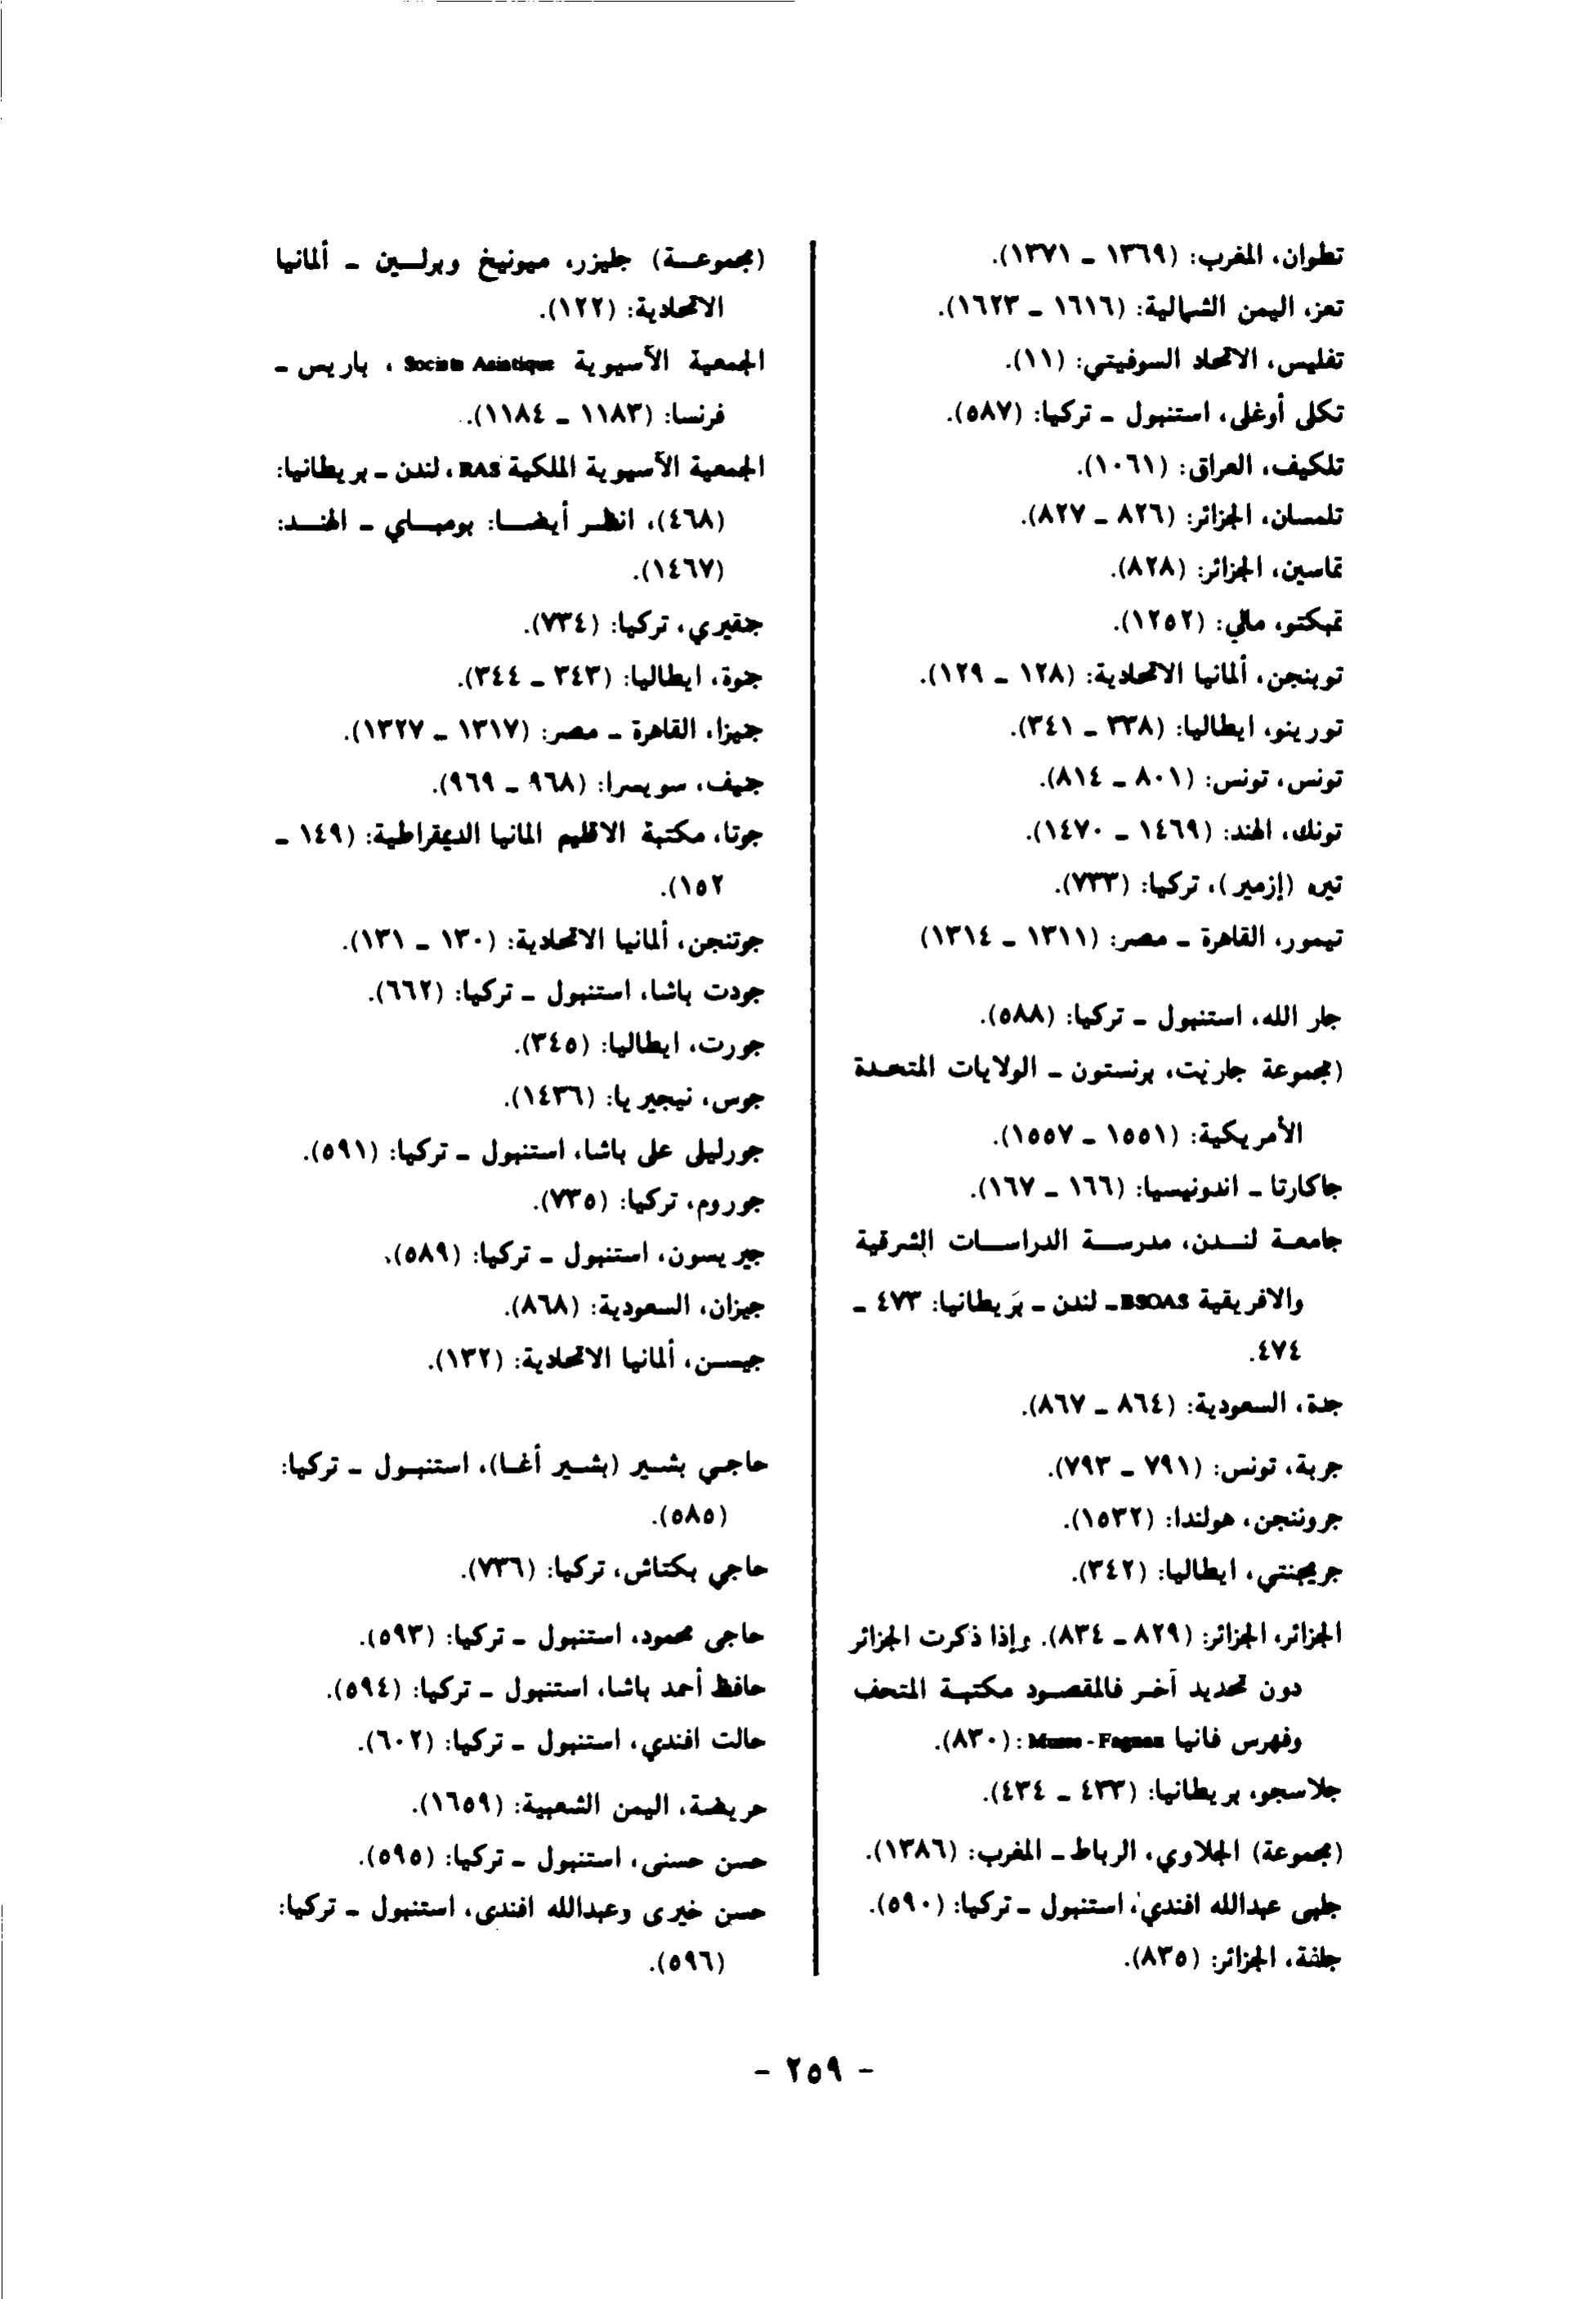 تطوان، المغرب: (١٣٦٩ ـ ١٣٧١).
تعز، اليمن الشمالية: (١٦١٦ ـ ١٦٢٣).
تفليس، الاتحاد السوفيتي: (١١).
تكلى أوغلى، استنبول ـ تركيا: (٥٨٧).
تلكيف، العراق: (١٠٦١).
تلمسان، الجزائر: (٨٢٦ ـ ٨٢٧).
تماسين، الجزائر: (٨٢٨).
تمبكتو، مالي: (١٢٥٢).
توبنجن، ألمانيا الاتحادية: (١٢٨ ـ ١٢٩).
تورينو، ايطاليا: (٣٣٨ ـ ٣٤١).
تونس، تونس: (٨٠١ ـ ٨١٤).
تونك، الهند: (١٤٦٩ ـ ١٤٧٠).
تيره (إزمير)، تركيا: (٧٣٣).
تيمور، القاهرة ـ مصر: (١٣١١ ـ ١٣١٤)
جار الله، استنبول ـ تركيا: (٥٨٨).
(مجموعة جاريت، برنستون ـ الولايات المتحدة
الأمريكية: (١٥٥١ ـ ١٥٥٧).
جاكارتا ـ اندونيسيا: (١٦٦ ـ ١٦٧).
جامعة لندن، مدرسة الدراسات الشرقية
والافريقية BSOAS ـ لندن ـ بريطانيا: ٤٧٣ ـ
٤٧٤.
جدة، السعودية: (٨٦٤ ـ ٨٦٧).
جربة، تونس: (٧٩١ ـ ٧٩٣).
جروننجن، هولندا: (١٥٣٢).
جريجنتي، ايطاليا: (٣٤٢).
الجزائر، الجزائر: (٨٢٩ ـ ٨٣٤). وإذا ذكرت الجزائر
دون تحديد آخر فالمقصود مكتبة المتحف
وفهرس فانيا Musee - Fagnan : (٨٣٠).
جلاسجو، بريطانيا: (٤٣٣ ـ ٤٣٤).
(مجموعة) الجلاوي، الرباط ـ المغرب: (١٣٨٦).
جلبى عبدالله افندي، استنبول ـ تركيا: (٥٩٠).
جلفة، الجزائر: (٨٣٥).
(مجموعة) جليزر، ميونيخ وبرلين ـ ألمانيا
الاتحادية: (١٢٢).
الجمعية الآسيوية Societe Asiatique ، باريس ـ
فرنسا: (١١٨٣ ـ ١١٨٤).
الجمعية الآسيوية الملكية RAS، لندن ـ بريطانيا:
(٤٦٨)، انظر أيضا: بومباي ـ الهند:
(١٤٦٧).
جنقيري، تركيا: (٧٣٤).
جنوة، ايطاليا: (٣٤٣ ـ ٣٤٤).
جنيزا، القاهرة ـ مصر: (١٣١٧ ـ ١٣٢٧).
جنيف، سويسرا: (٩٦٨ ـ ٩٦٩).
جوتا، مكتبة الاقليم المانيا الديمقراطية: (١٤٩ ـ
١٥٢).
جوتنجن، ألمانيا الاتحادية: (١٣٠ ـ ١٣١).
جودت باشا، استنبول ـ تركيا: (٦٦٢).
جورت، ايطاليا: (٣٤٥).
جوس، نيجيريا: (١٤٣٦).
جورليلى على باشا، استنبول ـ تركيا: (٥٩١).
جوروم، تركيا: (٧٣٥).
جيريسون، استنبول ـ تركيا: (٥٨٩).
جيزان، السعودية: (٨٦٨).
جيسن، ألمانيا الاتحادية: (١٣٢).
حاجي بشير (بشير أغا)، استنبول ـ تركيا:
(٥٨٥).
حاجي بكتاش، تركيا: (٧٣٦).
حاجى محمود، استنبول ـ تركيا: (٥٩٣).
حافظ أحمد باشا، استنبول ـ تركيا: (٥٩٤).
حالت افندي، استنبول ـ تركيا: (٦٠٢).
حريضة، اليمن الشعبية: (١٦٥٩).
حسن حسنى، استنبول ـ تركيا: (٥٩٥).
حسن خيرى وعبدالله افندى، استنبول ـ تركيا:
(٥٩٦).
- ٢٥٩ -